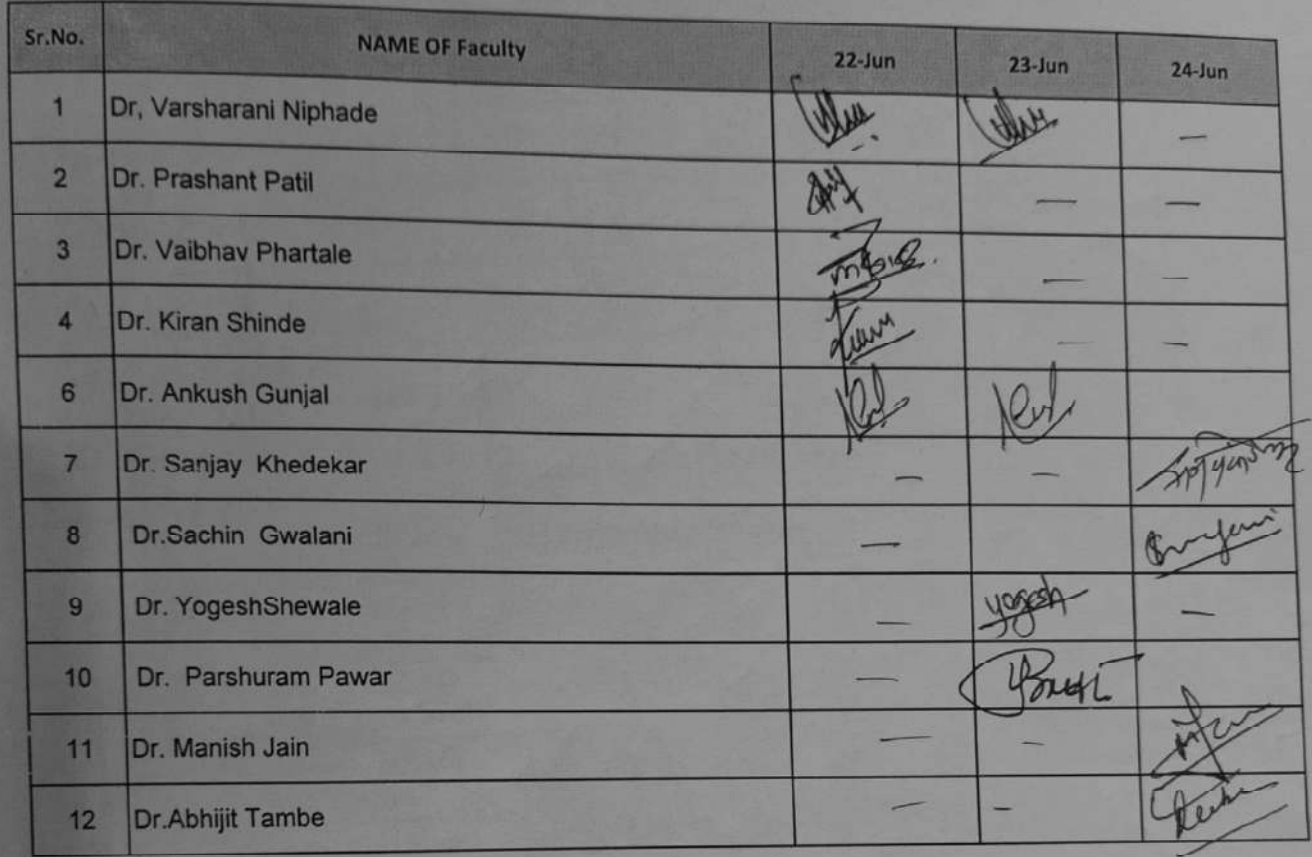 Sr.No. NAME OF Faculty 22-Jun 23-Jun 24-Jun
1 Dr, Varsharani Niphade –
2 Dr. Prashant Patil — —
3 Dr. Vaibhav Phartale — —
4 Dr. Kiran Shinde — –
6 Dr. Ankush Gunjal
7 Dr. Sanjay Khedekar — –
8 Dr.Sachin Gwalani —
9 Dr. YogeshShewale — yogesh —
10 Dr. Parshuram Pawar —
11 Dr. Manish Jain — –
12 Dr.Abhijit Tambe — –